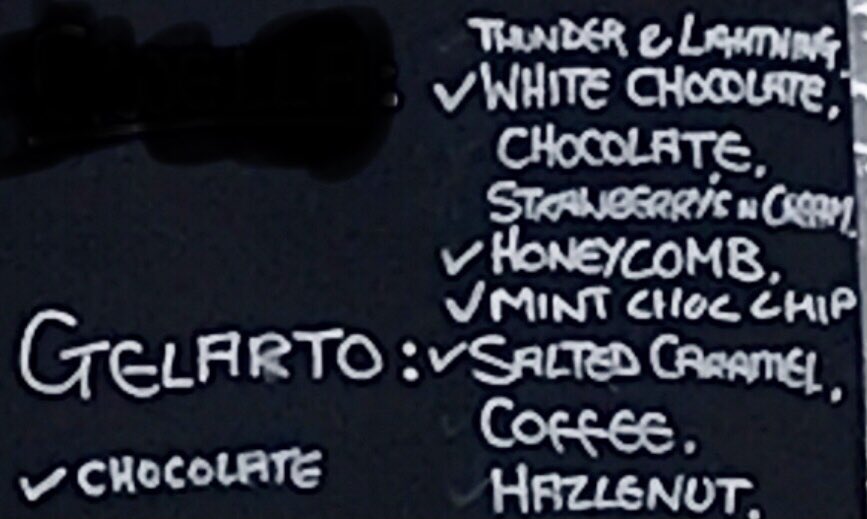 THUNDER & LIGHTNING.
✓WHITE CHOCOLATE,
CHOCOLATE,
STRAWBERRY'S N CREAM,
✓HONEYCOMB,
✓MINT CHOC CHIP
GELARTO: ✓SALTED CARAMEL,
COFFEE.
✓CHOCOLATE
HAZLENUT.